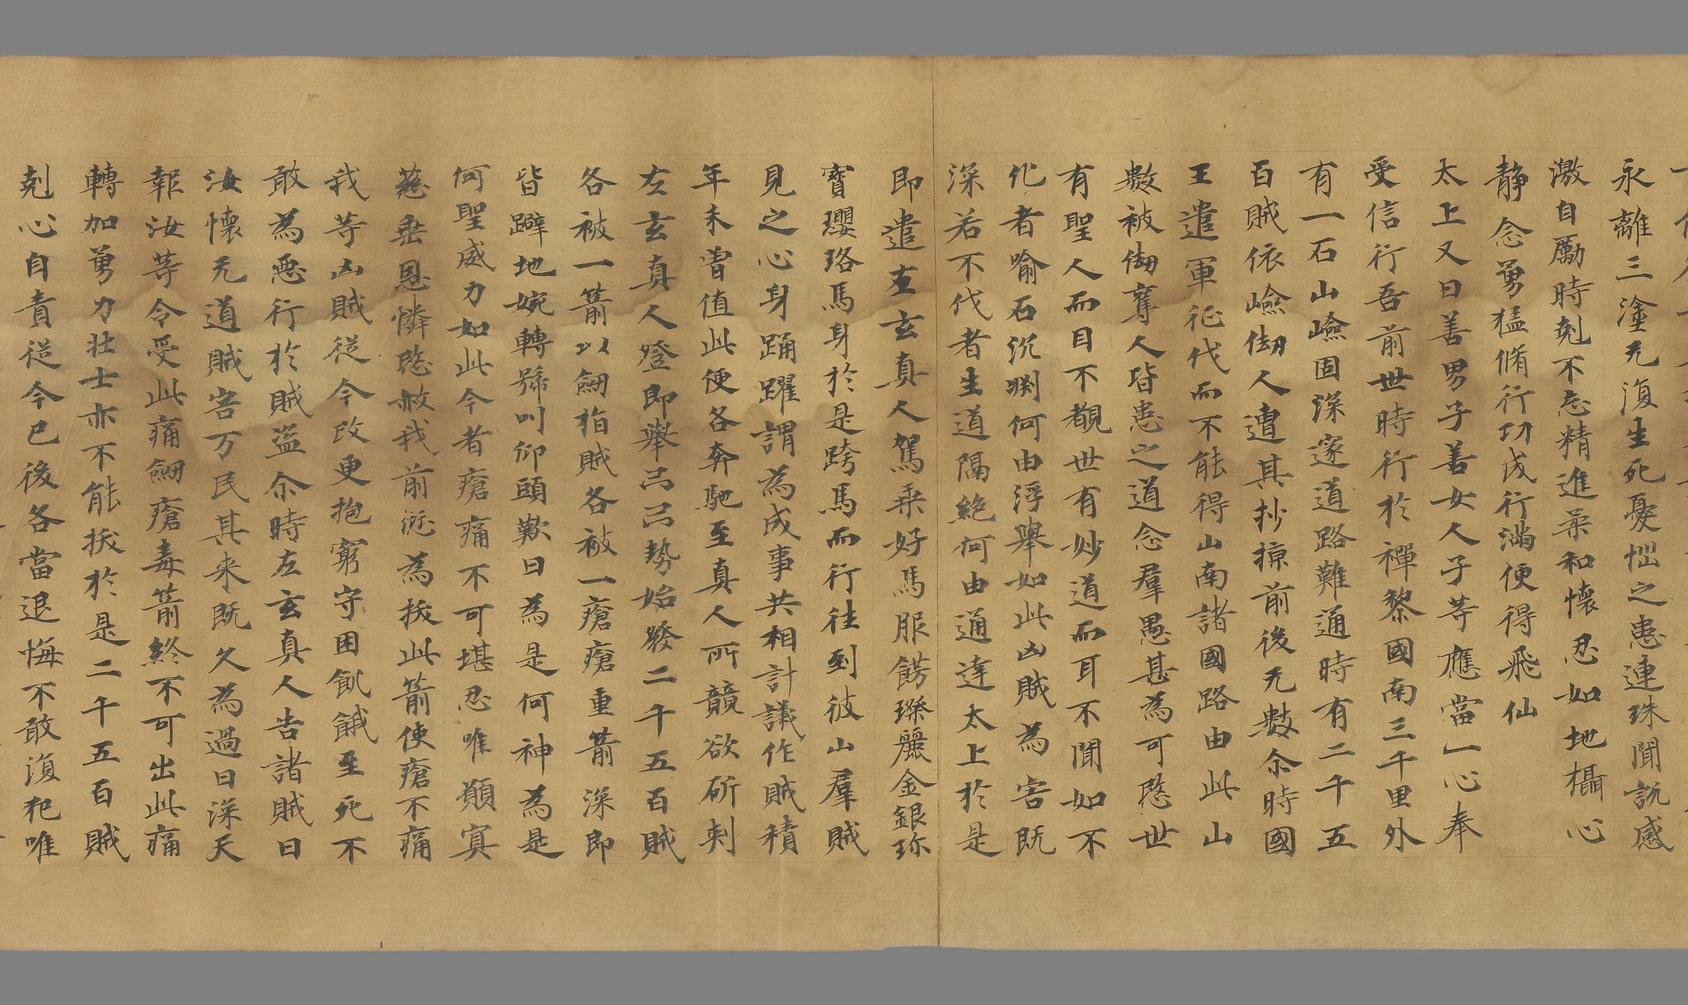 永離三塗无復生死憂惱之患連珠聞說感
激自勵時剋不忘精進柔和懷忍如地攝心
靜念勇猛脩行功成行滿便得飛仙
太上又曰善男子善女人子等應當一心奉
受信行吾前世時行於禪黎國南三千里外
有一石山嶮固深邃道路難通時有二千五
百賊依嶮劫人遭其抄掠前後无數尒時國
王遣軍征伐而不能得山南諸國路由此山
數被劫奪人皆患之道念羣愚甚為可愍世
有聖人而目不覩世有妙道而耳不聞如不
化者喻石沉淵何由浮舉如此凶賊為害既
深若不伐者生道隔絕何由通達太上於是
即遣左玄真人駕乘好馬服餝瓅麗金銀珎
寳瓔珞馬身於是跨馬而行往到彼山羣賊
見之心身踊躍謂為成事共相計議作賊積
年未曾值此便各奔馳至真人所競欲斫刺
左玄真人登即舉弓弓勢始發二千五百賊
各被一箭以劒指賊各被一瘡瘡重箭深即
皆躃地婉轉號叫仰頭歎曰為是何神為是
何聖威力如此今者瘡痛不可堪忍唯願寘
慈垂恩憐愍赦我前愆為拔此箭使瘡不痛
我等凶賊從今改更抱窮守困飢餓至死不
敢為惡行於賊盜尒時左玄真人告諸賊曰
汝懷无道賊害万民其来既久為過日深天
報汝等令受此痛劒瘡毒箭終不可出此痛
轉加勇力壯士亦不能拔於是二千五百賊
剋心自責從今已後各當退悔不敢復犯唯